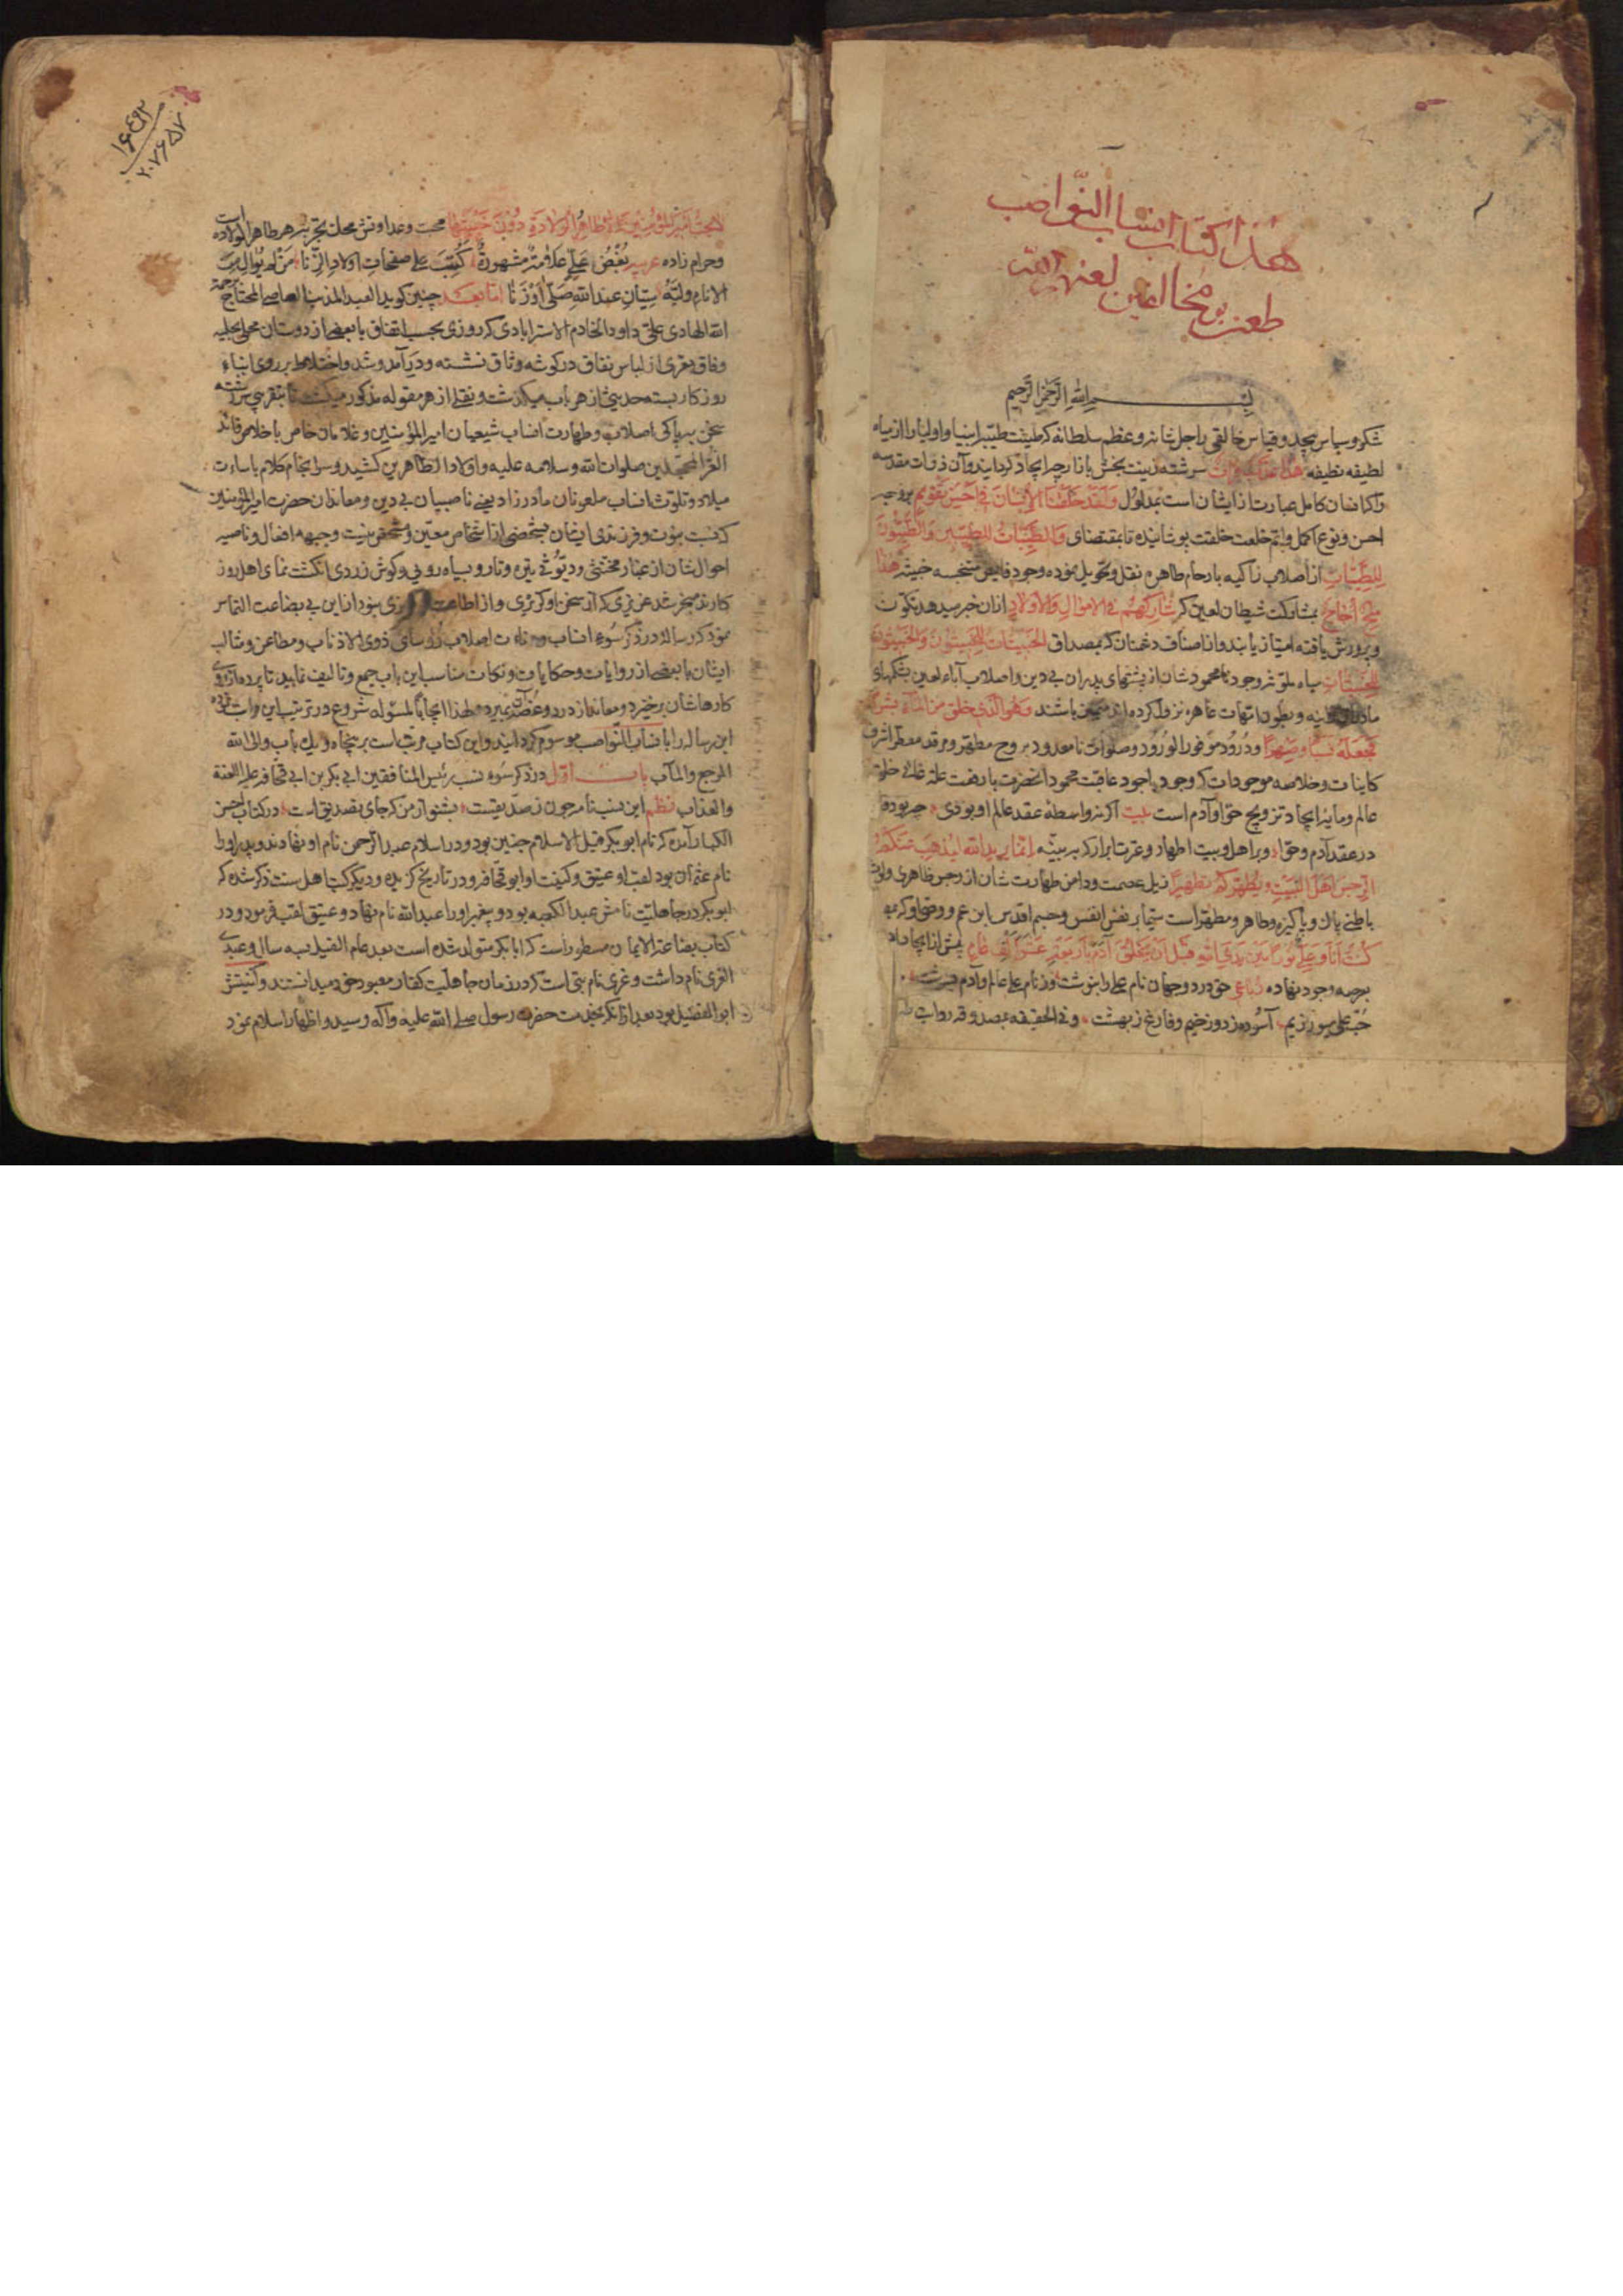 هذا کتاب انساب النواصب
طعن بر مخالفین لعنهم الله
بسم الله الرحمن الرحیم
شکر و سپاس بیحد و قیاس خالقی را جل شانه و عظم سلطانه که طینت طیبه انبیا و اولیا را از میاه
لطیفه نظیفه هذا عذب فرات سرشته زینت بخش بازارچه ایجاد گردانید و آن ذوات مقدسه
را که انسان کامل عبارت از ایشان است بمدلول و لقد خلقنا الانسان فی احسن تقویم بر وجه
احسن و نوع اکمل و اتم خلعت خلقت پوشانیده تا بمقتضای و الطیبات للطیبین و الطیبون
للطیبات از اصلاب زاکیه بارحام طاهره نقل و تحویل نموده وجود متنجسه خبیثه هذا
ملح اجاج بمشارکت شیطان لعین که شارکهم فی الاموال و الاولاد از ان خبر میدهد تکون
و پرورش یافته امتیاز یابند و از اصناف دشمنان که بمصداق الخبیثات للخبیثین و الخبیثون
للخبیثات میاه ملوث وجود نامحمودشان از پشتهای پدران بی دین و اصلاب آباء لعین بشکمهای
مادران و بطون امهات عاهره نزول کرده اند باشند و هو الذی خلق من الماء بشرا
فجعله نسبا و صهرا و درود موفور الورود و صلوات نامعدود بر روح مطهر و مرقد معطر اشرف
کاینات و خلاصه موجودات که وجود باجود عاقبت محمود آنحضرت بارفعت علة غائی خلقت
عالم و مایه ایجاد تزویج حوا و آدم است بیت اگر نه واسطه عقد عالم او بودی چه بوده
در عقد آدم و حوا و بر اهل و بیت اطهار و عترت ابرار که بر بینه انما یرید الله لیذهب عنکم
الرجس اهل البیت و یطهرکم تطهیرا ذیل عصمت و دامن طهارت شان از رجس ظاهری و لوث
باطنی پاک و پاکیزه و طاهر و مطهر است سیما بر نفس انفس و جسم اقدس ابن عم و وصی او که به
کنت انا و علی نورا بین یدی الله قبل ان یخلق آدم باربعة عشر الف عام پیش از ایجاد
بعرصه وجود نهاده رباعی حق در دو جهان نام علی را بنوشت وز نام علی عالم و آدم بسرشت
حب علی میورزیم آسوده ز دوزخیم و فارغ ز بهشت و فی الحقیقه بمصدوقه روایت
۱۶۴۹۲
۲۰۷۶۵۷
لا یحب امیر المؤمنین الا طاهر الولادة دون خبیثها محبت و عداوتش محک تجربه هر طاهر الولاده است
و حرام زاده عربیه بغض علی علامة مشهورة کتبت علی صفحات اولاد الزنا من لم یوال من
الانام ولیه سیان عند الله صلی او زنا اما بعد چنین گوید العبد المذنب العاصی المحتاج الی رحمة
الله الهادی علی داود الخادم الاسترابادی که روزی بحسب اتفاق با بعضی از دوستان محلی بحلیه
وفاق و معری از لباس نفاق در گوشه وثاق نشسته و در آمد و شد و اختلاط بر روی ابناء
روزگار بسته حدیثی از هر باب میگذشت و نقلی از هر مقوله مذکور میگشت تا بتقریبی سررشته
سخن بپاکی اصلاب و طهارت انساب شیعیان امیر المؤمنین و غلامان خاص با خلاص قائد
الغر المحجلین صلوات الله و سلامه علیه و اولاده الطاهرین کشید و سرانجام کلام باساءت
میلاد و تلوث انساب ملعونان مادرزاد یعنی ناصبیان بی دین و معاندان حضرت امیر المؤمنین
که نسبت بنوت و فرزندی ایشان بشخصی از اشخاص معین و مشخص نیست و جبهه افعال و ناصیه
احوال شان از غبار مخنثی و دیوثی تیره و تار و بسیاه رویی و گوش زردی انگشت نمای اهل روز
کارند منجر شد عزیزی که از سخن او گزیری و از اطاعت او گریزی نبود از این بی بضاعت التماس
نمود که رساله در ذکر سوء انساب و دنائت اصلاب رؤسای ذوی الاذناب و مطاعن و مثالب
ایشان با بعضی از روایات و حکایات و نکات مناسب این باب جمع و تالیف نمایید تا پرده از روی
کارهاشان برخیزد و معاند از درد و غصه بمیرد لهذا ایجابا لمسئوله شروع در ترتیب این اوراق نموده
این رساله را بانساب النواصب موسوم گردانید و این کتاب مرتب است بر پنجاه و یک باب و الی الله
المرجع و المآب باب اول در ذکر سوء نسب رئیس المنافقین ابی بکر بن ابی قحافه علیه اللعنة
و العذاب نظم این نسب نامه چون ز صدیقیست بشنو از من که جای تصدیق است در کتاب حسن
الکبار آمده که نام ابو بکر قبل الاسلام چنین بود و در اسلام عبد الرحمن نام او نهادند و پدر او را
نام عثمان بود لقب او عتیق و کنیت او ابو قحافه و در تاریخ گزیده و دیگر کتب اهل سنت ذکر شده که
ابو بکر در جاهلیت نامش عبد الکعبه بود و پیغمبر او را عبد الله نام نهاد و عتیق لقب فرمود و در
کتاب بضاعة الایمان مسطور است که ابا بکر متولد شده است بعد عام الفیل بسه سال و عبد
العزی نام داشت و عزی نام بتی است که در زمان جاهلیت کفار معبود خود میدانستند و کنیتش
ابو الفضیل بود بعد از انکه بخدمت حضرت رسول صلی الله علیه و آله رسید و اظهار اسلام نمود